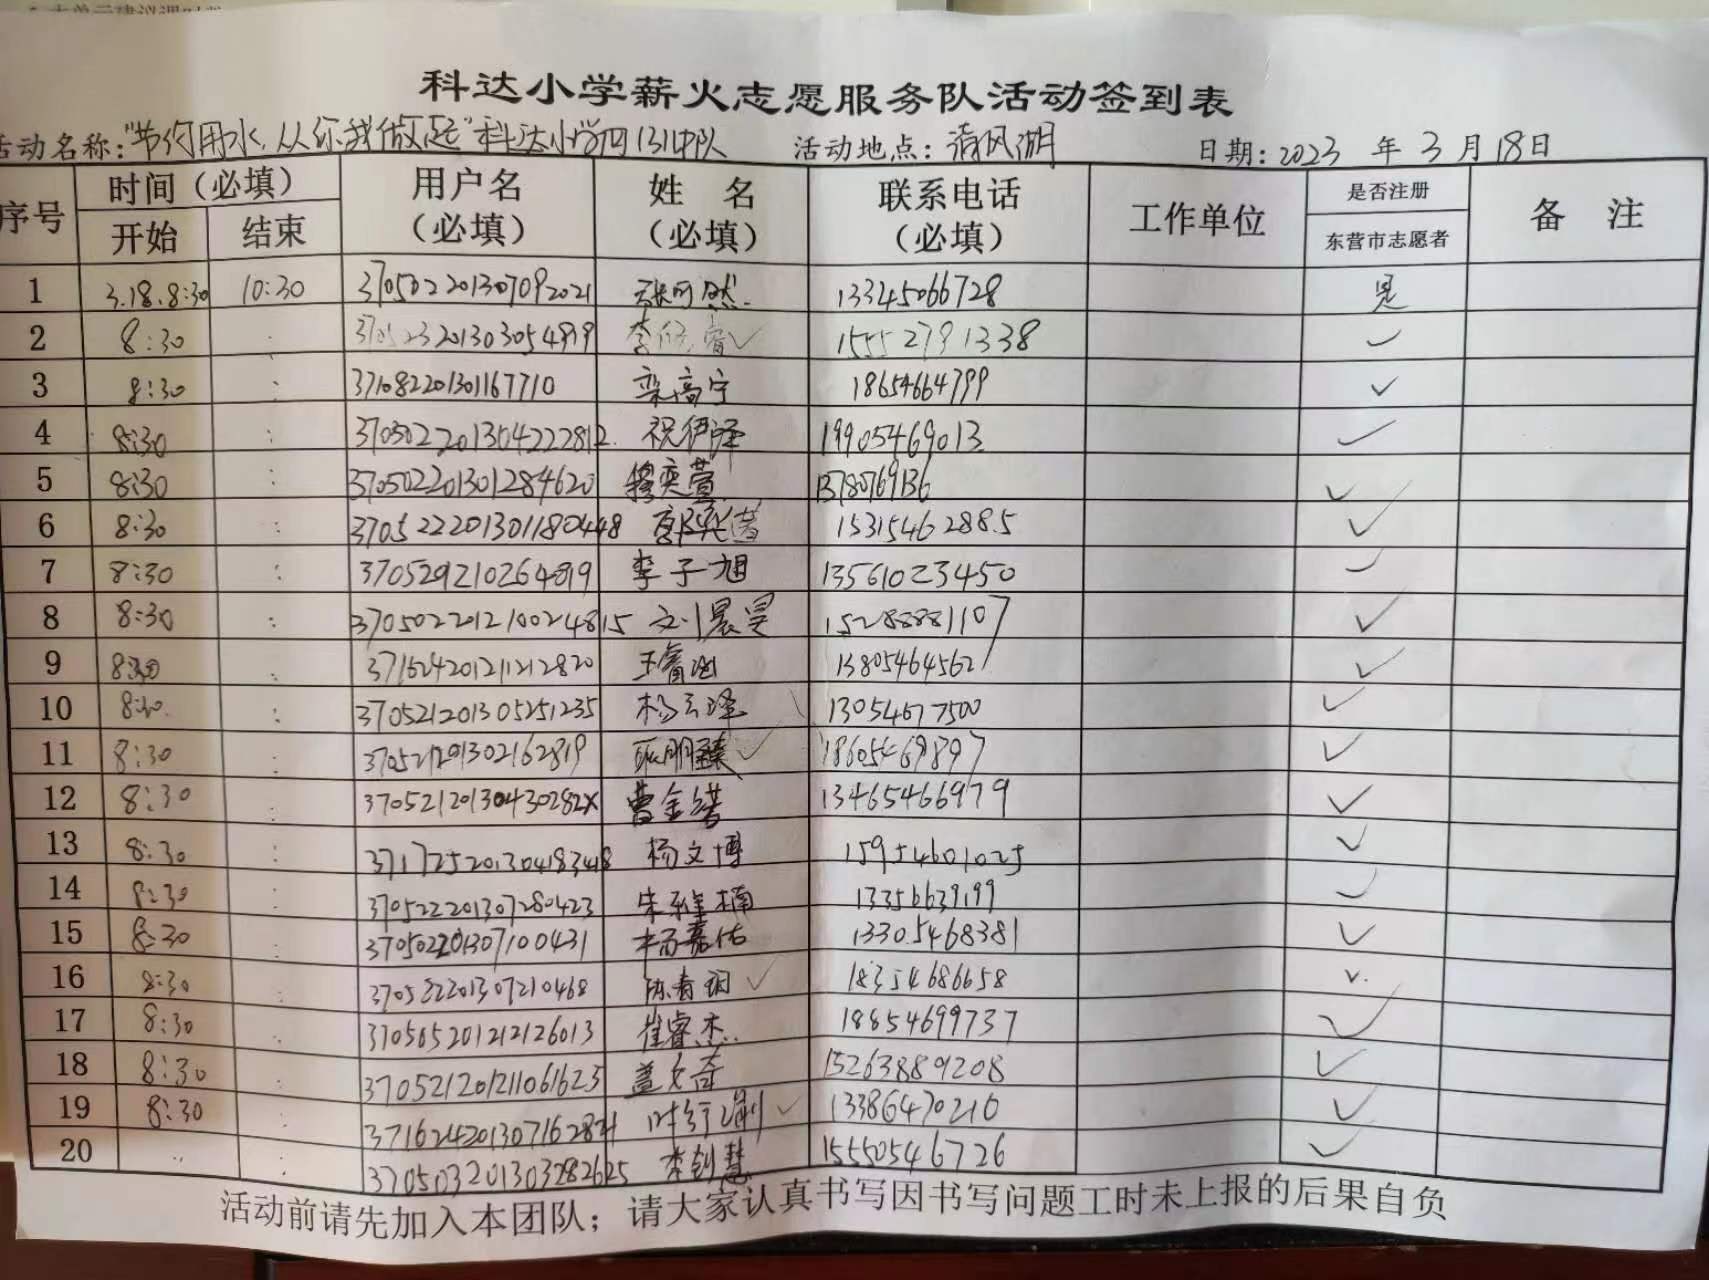 科达小学薪火志愿服务队活动签到表
活动名称："节约用水，从你我做起"科达小学四131中队 活动地点：清风湖 日期：2023 年 3 月 18日
序号 时间（必填） 用户名（必填） 姓 名（必填） 联系电话（必填） 工作单位 是否注册 备 注
开始 结束 东营市志愿者
1 3.18.8:30 10:30 370502201307092021 张可然 13345066728 是
2 8:30 : 370523201303054819 李 睿✓ 15552791338 ✓
3 8:30 : 371082201301167710 栾高宁 18654664799 ✓
4 8:30 : 370502201304222812 祝伊泽 19905469013 ✓
5 8:30 : 370502201301284620 穆奕萱 13780769136 ✓
6 8:30 : 370522201301180448 15315462885 ✓
7 8:30 : 370529210264819 李子旭 13561023450 ✓
8 8:30 : 370502201210024815 刘晨昊 15288881107 ✓
9 8:30 : 371624201211212820 王睿涵 13805464562 ✓
10 8:30 : 370521201305251235 杨云泽 13054677500 ✓
11 8:30 : 370521201302162819 明臻✓ 18605469897 ✓
12 8:30 : 37052120130430282X 曹金诺 13465466979 ✓
13 8:30 : 371725201304183418 杨文博 15954601025 ✓
14 8:30 : 370522201307280423 朱 楠 13356639199 ✓
15 8:30 : 370502201307100431 杨嘉佑 13305468381 ✓
16 8:30 : 370522201307210468 陈春玥✓ 18354686658 ✓
17 8:30 : 370505201212126013 崔睿杰 18854699737 ✓
18 8:30 : 370521201211061623 盖文奇 15263889208 ✓
19 8:30 : 叶 ✓ 13386470210 ✓
20 : : 370503201303282625 李钊慧 15550546726 ✓
活动前请先加入本团队；请大家认真书写因书写问题工时未上报的后果自负